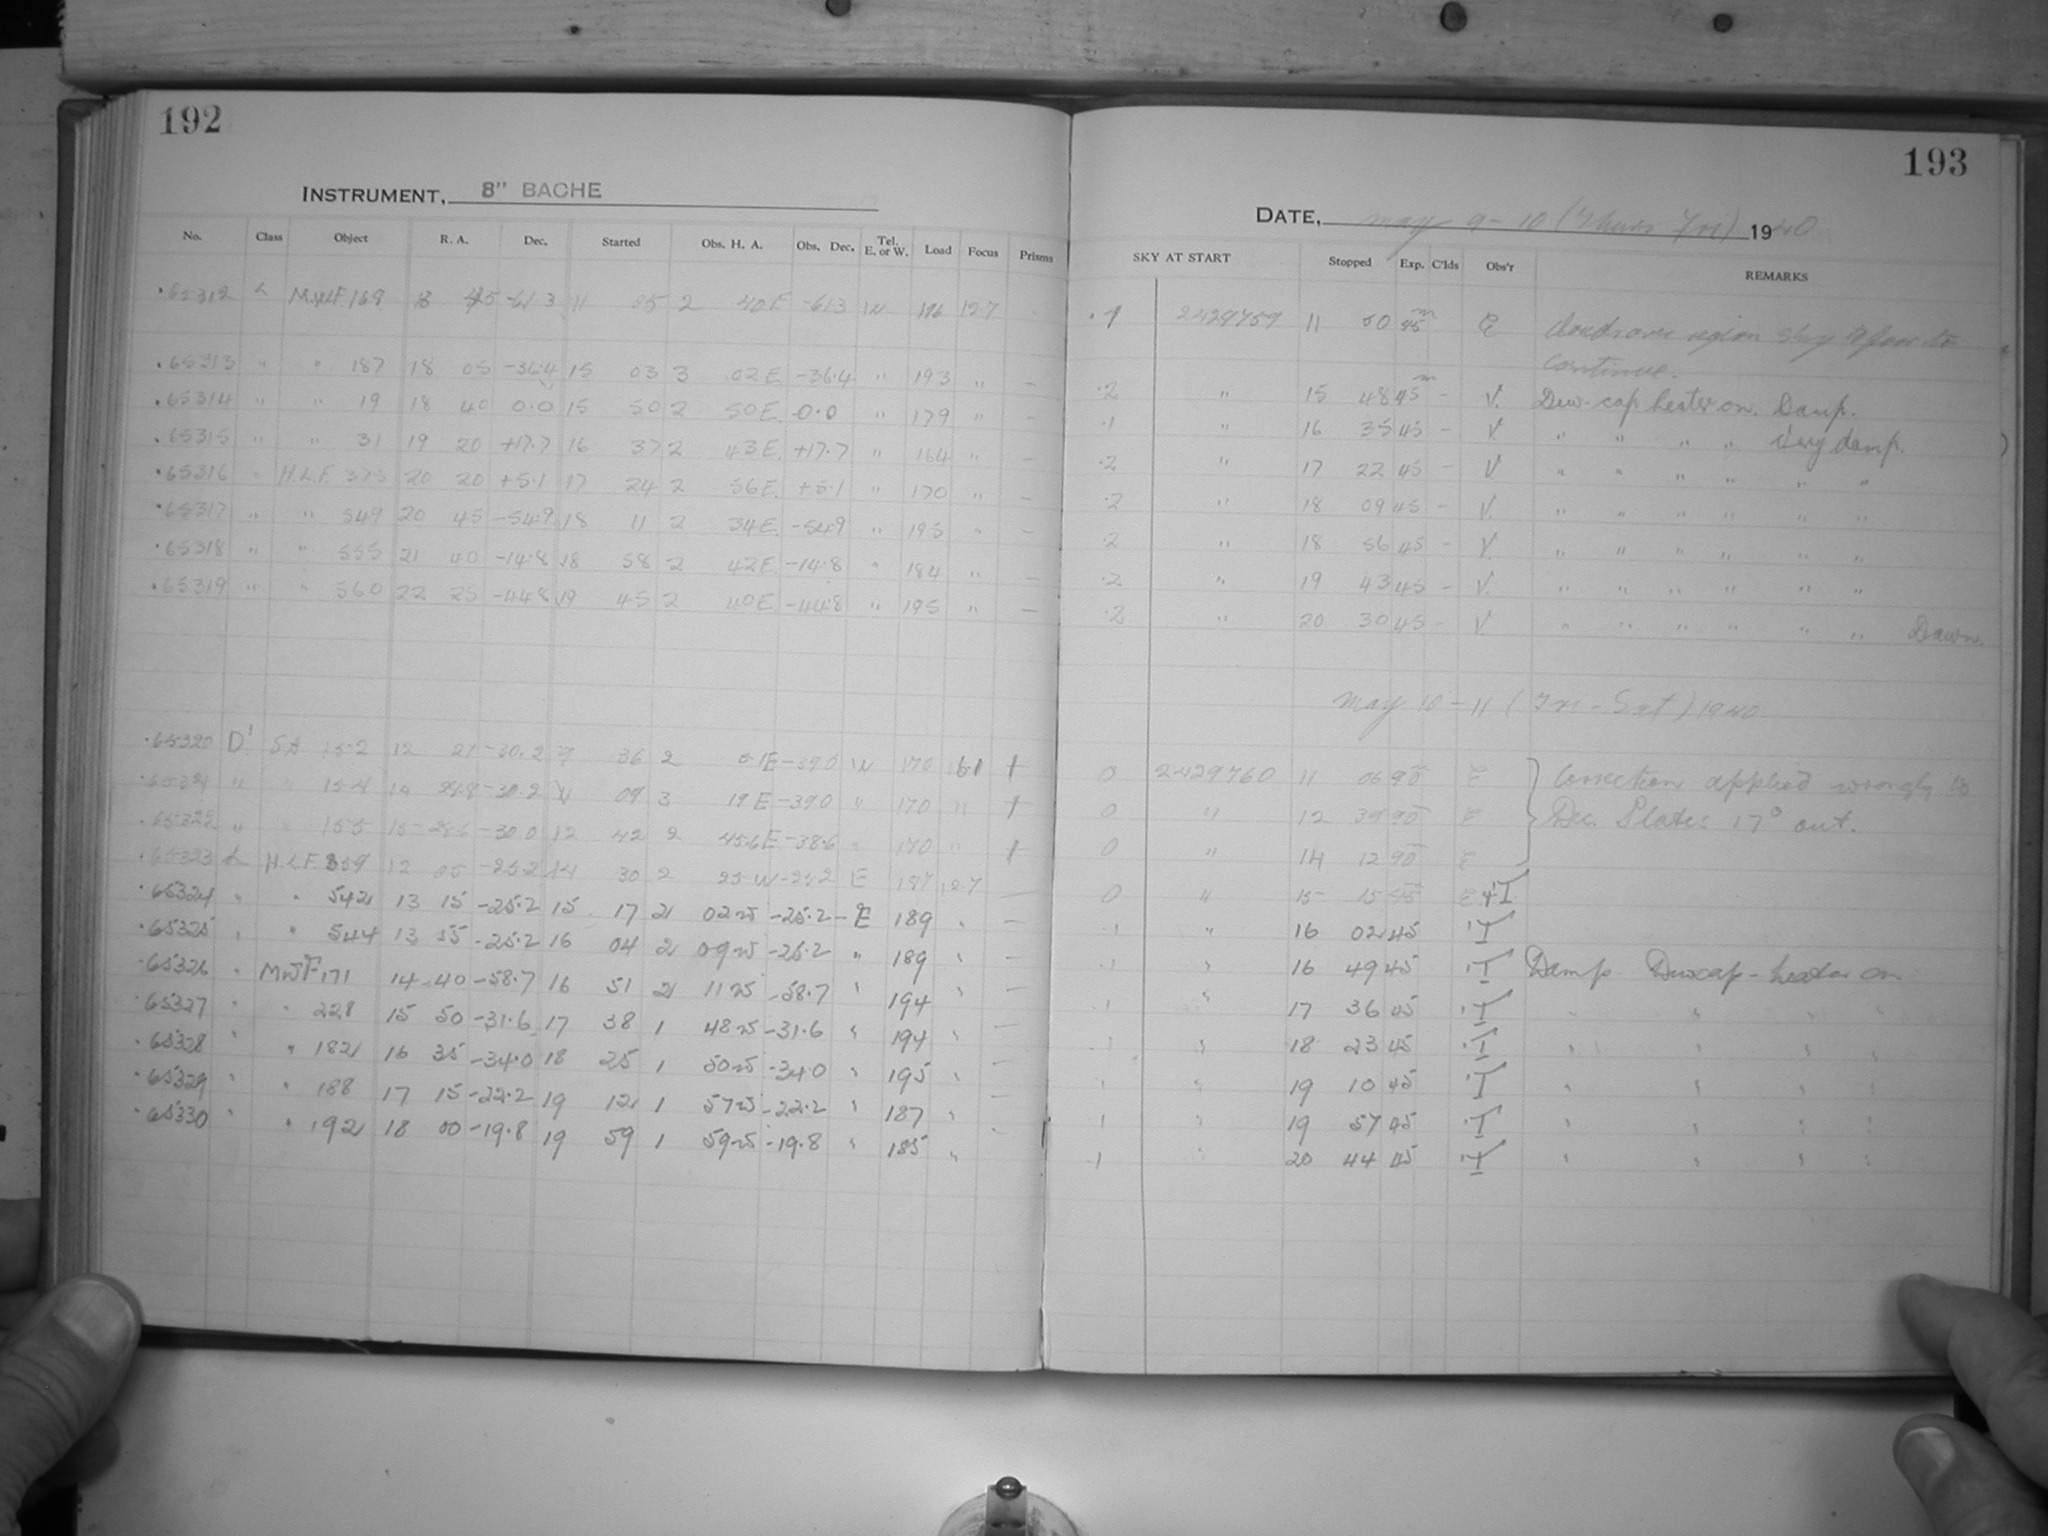 192
INSTRUMENT, 8" BACHE
No. Class Object R. A. Dec. Started Obs. H. A. Obs. Dec. Tel. E. or W. Load Focus Prisms
.65312 L M.W.F. 169 13 45 -61.3 11 05 2 40 E -61.3 W 196 12.7
.65313 " " 187 18 05 -36.4 15 03 3 02 E. -36.4 " 193 " -
.65314 " " 19 18 40 0.0 15 50 2 50 E. 0.0 " 179 " -
.65315 " " 31 19 20 +17.7 16 37 2 43 E. +17.7 " 164 " -
.65316 " H.L.F. 375 20 20 +5.1 17 24 2 56 E. +5.1 " 170 " -
.65317 " " 549 20 45 -54.9 18 11 2 34 E. -54.9 " 195 " -
.65318 " " 555 21 40 -14.8 18 58 2 42 E. -14.8 " 184 " -
.65319 " " 560 22 25 -44.8 19 45 2 40 E. -44.8 " 195 " -
.65320 D! SA 15-2 12 27 -30.2 9 36 2 51 E -39.0 W 170 16.1 †
15-4 -30.2 09 3 19 E -39.0 " 170 " †
.65322 " " 15-5 15 28.6 -30.0 12 42 2 45.6 E -38.6 " 170 " †
.65323 L H.L.F. 359 12 05 -25.2 14 30 2 25 W -25.2 E 187 12.7 -
.65324 " " 542 13 15 -25.2 15 17 2 02 W -25.2 - E 189 " -
.65325 " " 544 13 55 -25.2 16 04 2 09 W -25.2 " 189 " -
.65326 " MWF 171 14 40 -58.7 16 51 2 11 W -58.7 " 194 " -
.65327 " " 228 15 50 -31.6 17 38 1 48 W -31.6 " 194 " -
.65328 " " 182 16 35 -34.0 18 25 1 50 W -34.0 " 195 " -
.65329 " " 188 17 15 -22.2 19 12 1 57 W -22.2 " 187 " -
.65330 " 192 18 00 -19.8 19 59 1 59 W -19.8 " 185 "
193
DATE, May 9-10 (Thurs Fri) 1940
SKY AT START Stopped Exp. C'lds Obs'r REMARKS
.1 2429759 11 50 45m E Clouds over region Sky to
continue.
.2 " 15 48 45m - V. Dew-cap heater on. Damp.
.1 " 16 35 45 - V. " " " " Very damp.
.2 " 17 22 45 - V. " " " " " "
.2 " 18 09 45 - V. " " " " " "
.2 " 18 56 45 - V. " " " " " "
.2 " 19 43 45 - V. " " " " " "
.2 " 20 30 45 - V. " " " " " " Dawn.
May 10-11 (Fri-Sat) 1940
0 2429760 11 06 90 E Correction applied wrongly to
0 " 12 39 90 E Dec. Plates 17° out.
0 " 14 12 90 E
0 " 15 15 45 E+T
.1 " 16 02 45 T
.1 " 16 49 45 T Damp Dewcap-heater on
.1 " 17 36 45 T " " " "
.1 " 18 23 45 T " " " "
.1 " 19 10 45 T " " " "
.1 " 19 57 45 T " " " "
.1 " 20 44 45 T " " " "